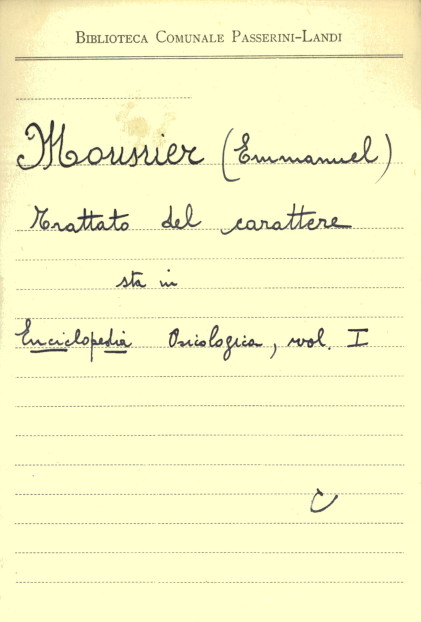 BIBLIOTECA COMUNALE PASSERINI-LANDI
Mounier (Emmanuel)
Trattato del carattere
sta in
Enciclopedia Psicologica, vol. I
C